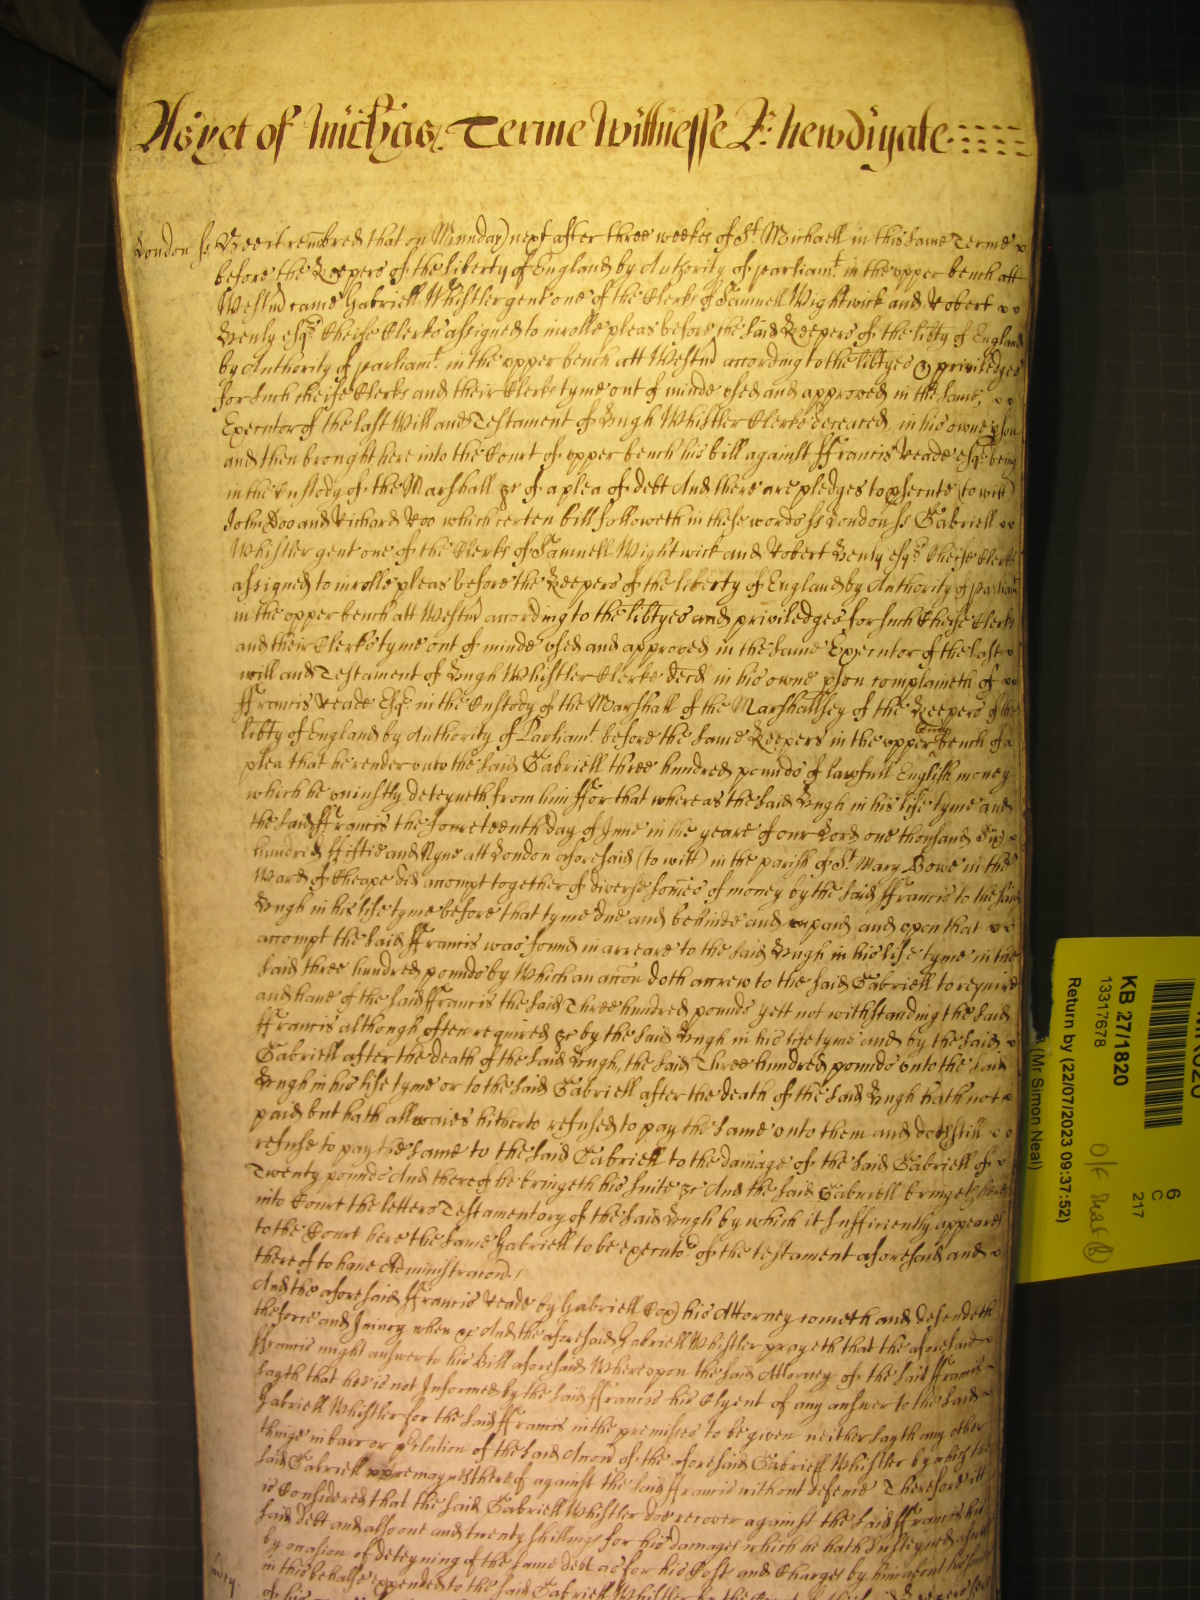 As yet of Michas. Terme Wittnesse R: Newdigate
London ss Bee it remembred that on Munday next after three weekes of St. Michaell in this same Terme
before the Keepers of the liberty of England by Authority of parliamt. in the upper bench att
Westmr came Gabriell Whistler gent one of the Clerks of Samuell Wightwick and Robert
Henly esqrs Cheife Clerks assigned to inrolle pleas before the said Keepers of the libty of England
by Authority of parliamt. in the upper bench att Westmr according to the libtyes & priviledges
for such cheife Clerks and their Clerks tyme out of minde used and approved in the same,
Executor of the last Will and Testament of Hugh Whistler Clerke deceaced, in his owne pson
and then brought here into the Court of upper bench his bill against ffrancis Reade esqr. being
in the Custody of the Marshall &c of a plea of debt And there are pledges to psecute (to witt)
John Doo and Richard Roo which certen bill followeth in these words ss London ss Gabriell
Whistler gent one of the Clerks of Samuell Wightwick and Robert Henly esqrs Cheife Clerks
assigned to inrolle pleas before the Keepers of the liberty of England by Authority of parliamt
in the upper bench att Westmr according to the libtyes and priviledges for such Cheife Clerks
and their Clerks tyme out of minde used and approved in the same Executor of the last
will and Testament of Hugh Whistler Clerke decd in his owne pson complaineth of
ffrancis Reade Esqr. in the Custody of the Marshall of the Marshallsey of the Keepers of the
libty of England by Authority of Parliamt. before the same Keepers in the upper bench of a
plea that he render unto the said Gabriell three hundred pounds of lawfull English money
which he uniustly deteyneth from him ffor that whereas the said Hugh in his life tyme and
the said ffrancis the fourteenth day of June in the yeare of our Lord one thousand six
hundred fiftie and Nyne att London aforesaid (to witt) in the parish of St. Mary Bowe in the
Ward of Cheape did accompt together of diverse somes of money by the said ffrancis to the said
Hugh in his life tyme before that tyme due and behinde and unpaid and upon that
accompt the said ffrancis was found in arreare to the said Hugh in his life tyme in the
said three hundred pounds by which an accon doth accrew to the said Gabriell to require
and have of the said ffrancis the said Three hundred pounds yett not withstanding the said
ffrancis although often required &c by the said Hugh in his life tyme and by the said
Gabriell after the death of the said Hugh, the said Three hundred pounds unto the said
Hugh in his life tyme or to the said Gabriell after the death of the said Hugh hath not
paid but hath allwaies hitherto refused to pay the same unto them and doth still
refuse to pay the same to the said Gabriell to the damage of the said Gabriell of
Twenty pounds And thereof he bringeth his suite &c And the said Gabriell bringeth here
into Court the letters Testamentory of the said Hugh by which it sufficiently appeares
to the Court here the same Gabriell to be executor of the testament aforesaid and
thereof to have Administracon.
And the aforesaid ffrancis Reade by Gabriell Cox his Attorney cometh and defendeth
the force and Iniury when &c And the aforesaid Gabriell Whistler prayeth that the aforesaid
ffrancis might answer to his Bill aforesaid Whereupon the said Attorney of the said ffrancis
sayth that hee is not Informed by the said ffrancis his Clyent of any answer to the said
Gabriell Whistler for the said ffrancis in the premises to be given neither sayth any other
thinge in barr or of the said Accon of the aforesaid Gabriell Whistler by which the
said Gabriell remaynes thereof against the said ffrancis without defence Therefore itt
is Considered that the said Gabriell Whistler doe recover against the said ffrancis his
said debt and also one and twenty shillings for his damages which he hath susteyned aswell
by occasion of deteyning of the same debt as for his Costs and Charges by him about his suite
in this behalfe expended to the said Gabriell Whistler by the Court
KB 27/1820
13317678
Return by (22/07/2023 09:37:52)
(Mr Simon Neal)
6
C
217